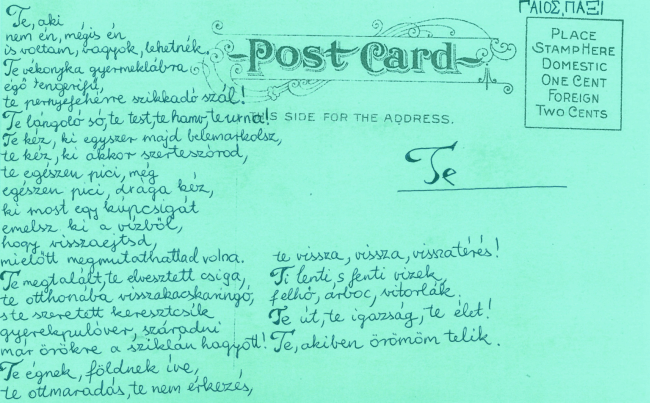 Te, aki
nem én, mégis én
is voltam, vagyok, lehetnék.
Te vékonyka gyermeklábra
égő tengerifű,
te pernyefehérre szikkadó szál!
Te lángoló só, te test, te hamv, te urna!
Te kéz, ki egyszer majd belemarkolsz,
te kéz, ki akkor szerteszórod,
te egészen pici, még
egészen pici, drága kéz,
ki most egy kúpcsigát
emelsz ki a vízből,
hogy visszaejtsd,
mielőtt megmutathattad volna.
Te megtalált, te elvesztett csiga,
te otthonába visszakacskaringó,
s te szeretett keresztcsík
gyerekpulóver, száradni
már örökre a sziklán hagyott!
Te égnek, földnek íve,
te ottmaradás, te nem érkezés,
te vissza, vissza, visszatérés!
Ti lenti, s fenti vizek,
felhő, árboc, vitorlák.
Te út, te igazság, te élet!
Te, akiben örömöm telik.
ΓΑΙΟΣ, ΠΑΞΙ
PLACE
STAMP HERE
DOMESTIC
ONE CENT
FOREIGN
TWO CENTS
Post Card
THIS SIDE FOR THE ADDRESS.
Te